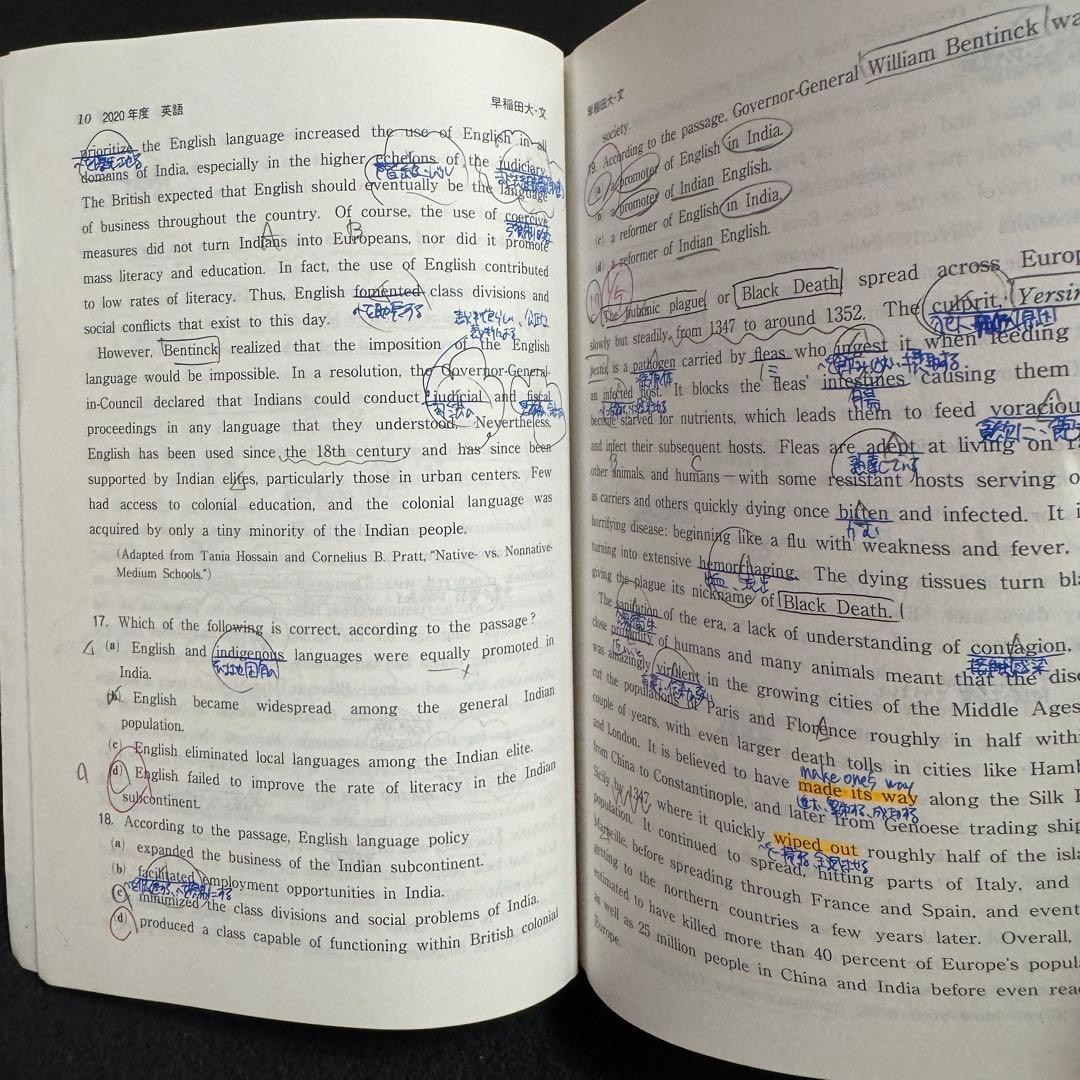 10 2020年度 英語 早稲田大-文
prioritize the English language increased the use of English in all
domains of India, especially in the higher echelons of the judiciary.
The British expected that English should eventually be the language
of business throughout the country. Of course, the use of coercive
measures did not turn Indians into Europeans, nor did it promote
mass literacy and education. In fact, the use of English contributed
to low rates of literacy. Thus, English fomented class divisions and
social conflicts that exist to this day.
However, Bentinck realized that the imposition of the English
language would be impossible. In a resolution, the Governor-General-
in-Council declared that Indians could conduct judicial and fiscal
proceedings in any language that they understood. Nevertheless,
English has been used since the 18th century and has since been
supported by Indian elites, particularly those in urban centers. Few
had access to colonial education, and the colonial language was
acquired by only a tiny minority of the Indian people.
(Adapted from Tania Hossain and Cornelius B. Pratt, "Native- vs. Nonnative-
Medium Schools.")
17. Which of the following is correct, according to the passage?
(a) English and indigenous languages were equally promoted in
India.
(b) English became widespread among the general Indian
population.
(c) English eliminated local languages among the Indian elite.
(d) English failed to improve the rate of literacy in the Indian
subcontinent.
18. According to the passage, English language policy
(a) expanded the business of the Indian subcontinent.
(b) facilitated employment opportunities in India.
(c) minimized the class divisions and social problems of India.
(d) produced a class capable of functioning within British colonial
早稲田大-文
society.
19. According to the passage, Governor-General William Bentinck wa
(a) a promoter of English in India.
(b) a promoter of Indian English.
(c) a reformer of English in India.
(d) a reformer of Indian English.
The bubonic plague or Black Death spread across Europ
slowly but steadily from 1347 to around 1352. The culprit, Yersin
pestis, is a pathogen carried by fleas who ingest it when feeding
an infected host. It blocks the fleas' intestines causing them
become starved for nutrients, which leads them to feed voraciou
and infect their subsequent hosts. Fleas are adept at living on
other animals, and humans—with some resistant hosts serving o
as carriers and others quickly dying once bitten and infected. It i
horrifying disease: beginning like a flu with weakness and fever.
turning into extensive hemorrhaging. The dying tissues turn bla
giving the plague its nickname of Black Death.
The sanitation of the era, a lack of understanding of contagion,
close proximity of humans and many animals meant that the dise
was amazingly virulent in the growing cities of the Middle Ages
cut the populations of Paris and Florence roughly in half with
couple of years, with even larger death tolls in cities like Hamb
and London. It is believed to have made its way along the Silk
make one's way
from China to Constantinople, and later from Genoese trading ship
Sicily by 1347 where it quickly wiped out roughly half of the isla
population. It continued to spread, hitting parts of Italy, and
Marseille, before spreading through France and Spain, and event
getting to the northern countries a few years later. Overall,
estimated to have killed more than 40 percent of Europe's popul
as well as 25 million people in China and India before even rea
Europe.